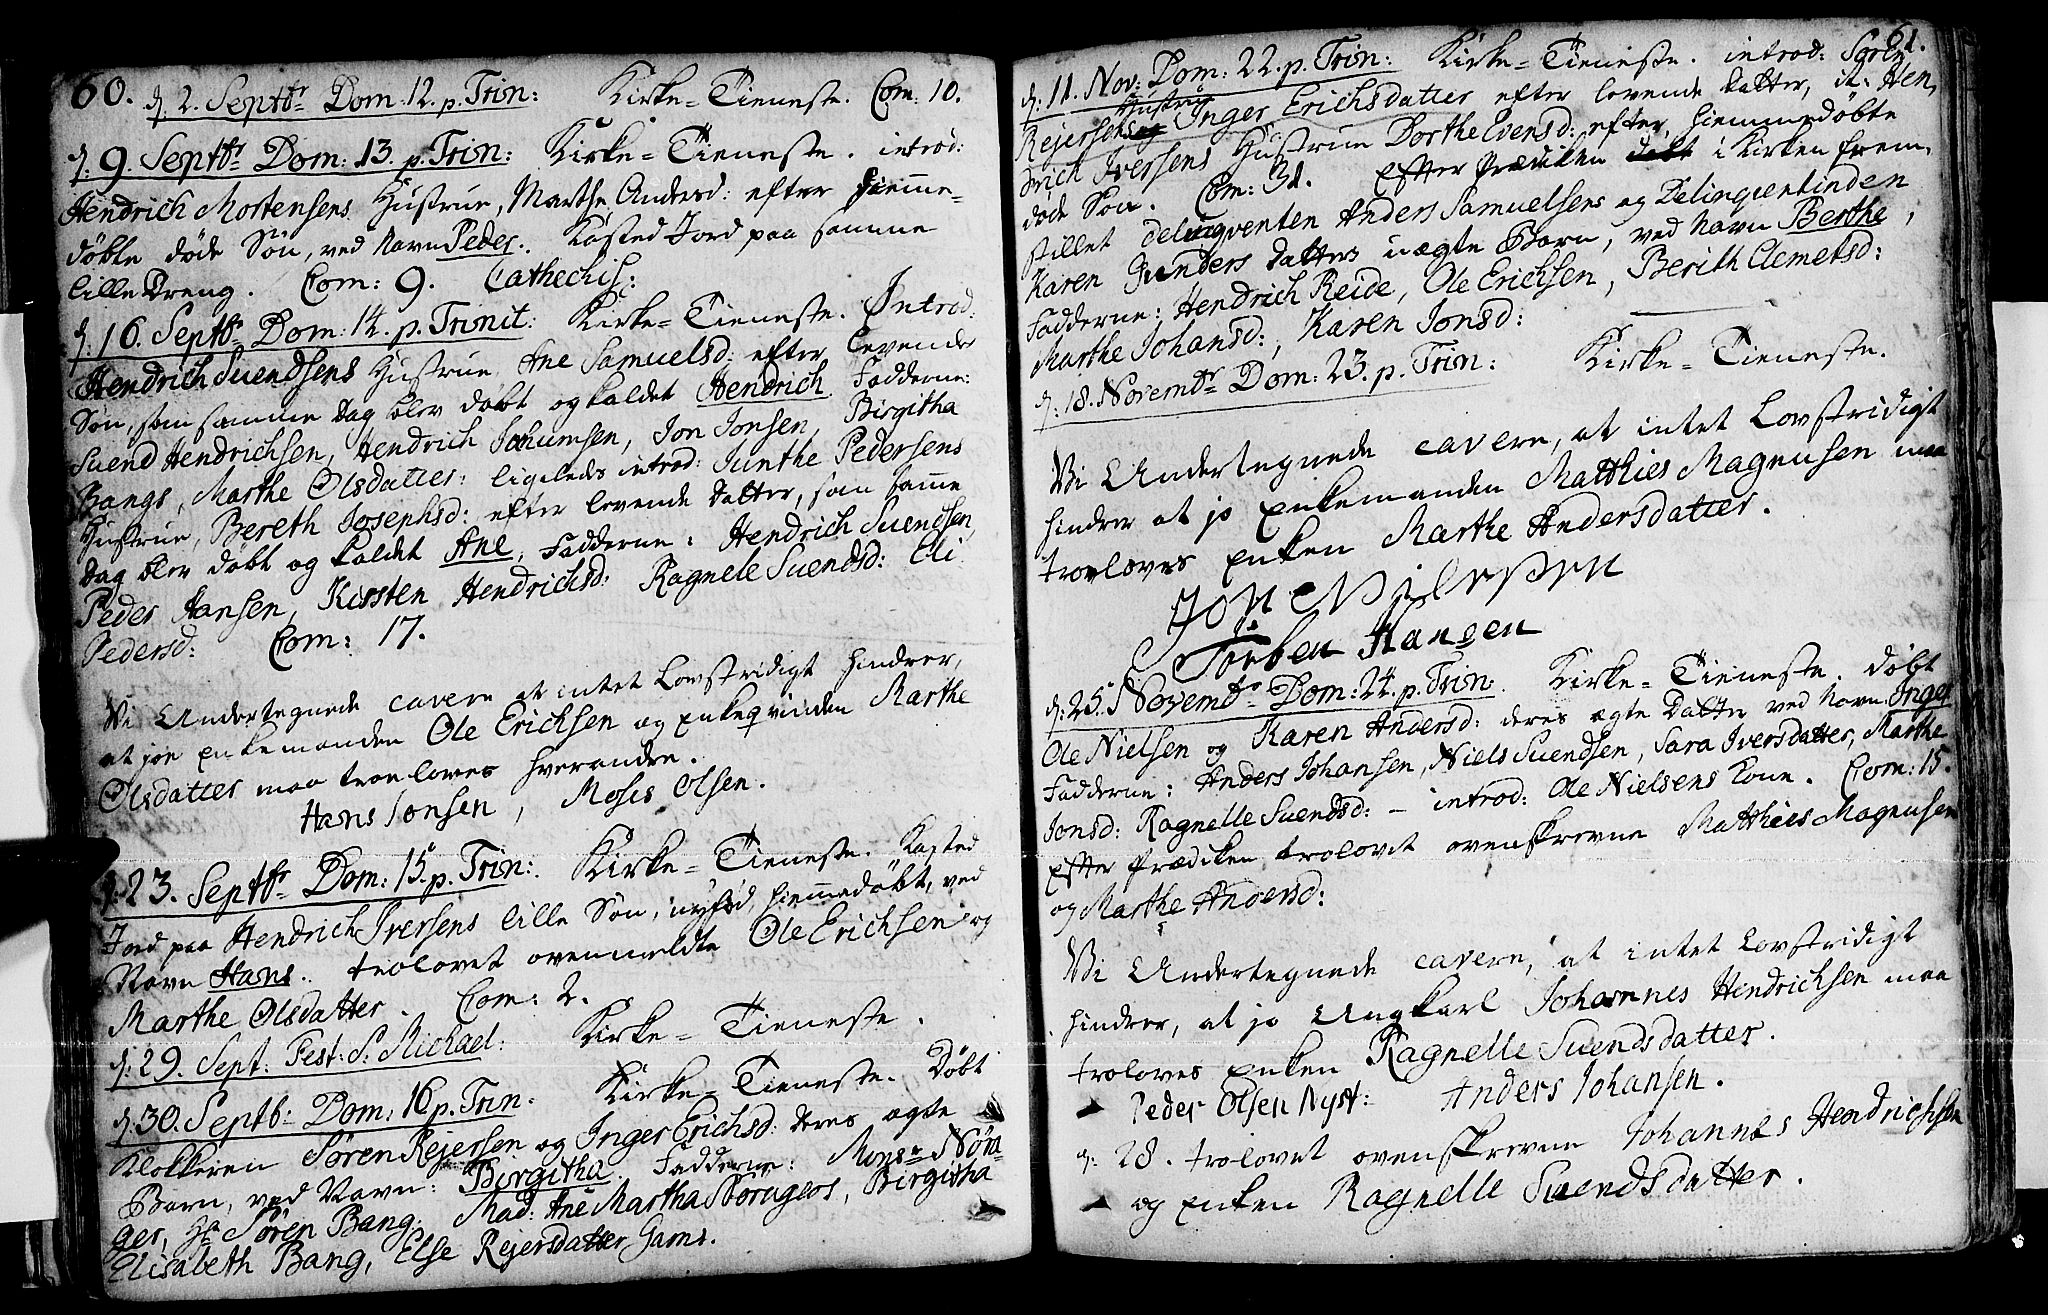 60.
d. 2. Septbr Dom: 12. p. Trin: Kirke-Tieneste. Com: 10.
d: 9. Septbr Dom: 13. p. Trin: Kirke-Tieneste. introd:
Hendrich Mortensens Hustrue, Marthe Andersd: efter hieme-
døbte døde Søn, ved Navn Peder. Kasted Jord paa samme
lille Dreng. Com: 9. Cathechis:
d. 16. Septbr Dom: 14. p. Trinit: Kirke-Tieneste. Introd:
Hendrich Suendsens Hustrue Ane Samuelsd: efter levende
Søn, som samme Dag blev døbt og kaldet Hendrich. Fadderne:
Suend Hendrichsen, Hendrich Jon Jonsen, Birgitha
Bangs, Marthe Olsdatter: ligeleds introd: Junthe Pedersens
Hustrue, Bereth Josephsd: efter levende Datter, som same
Dag blev døbt og kaldet Ane, Fadderne: Hendrich Suendsen,
Peder Hansen, Kirsten Hendrichsd: Ragnele Suendsd: Eli
Pedersd: Com: 17.
Vi Undertegnede cavere at intet Lovstridigt hindrer,
at jo enkemanden Ole Erichsen og enkeqvinden Marthe
Olsdatter maa troeloves hverandre.
Hans Jonsen, Moses Olsen.
d: 23. Septbr Dom: 15. p. Trin: Kirke-Tieneste. Kasted
Jord paa Hendrich Iversens lille Søn, nyfød, hiemedøbt, ved
Navn Hans. trolovet ovenmeldte Ole Erichsen og
Marthe Olsdatter. Com: 2.
d: 29. Sept: Fest: S: Michael: Kirke-Tieneste.
d: 30. Septb: Dom: 16 p. Trin. Kirke-Tieneste. Døbt
Klokkeren Søren Rejersen og Inger Erichsd: deres ægte
Barn, ved Navn: Birgitha. Fadderne: Monsr Nøra-
ger, Hr Søren Bang. Mad: Ane Martha Nøragers, Birgitha
Elisabeth Bang, Else Rejersdatter Gams.
61.
d: 11. Nov: Dom: 22. p. Trin: Kirke-Tieneste. introd: Sørens
Rejersens Hustrue Inger Erichsdatter efter levende Datter, it: Hen-
drich Iversens Hustrue Dorthe Evensd: efter hiemmedøbte
døde Søn. Com: 31. Efter Prædiken i Kirken frem-
stillet delinqventen Anders Samuelsens og Delinquentinden
Karen Gunders Datters uægte Barn, ved Navn Berthe,
Fadderne: Hendrich Reide, Ole Erichsen, Berith Clemetsd:
Marthe Johansd:, Karen Jonsd:
d: 18. Novembr Dom: 23. p. Trin: Kirke-Tieneste.
Vi Undertegnede cavere, at intet Lovstridigt
hindrer at jo Enkemanden Matthies Magnusen maa
troeloves Enken Marthe Andersdatter.
Jon Nilessen
Torben Hansen
d: 25. Novembr Dom: 24. p. Trin: Kirke-Tieneste. Døbt
Ole Nielsen og Karen Andersd: deres ægte Datter ved Navn Inger
Fadderne: Anders Johansen, Niels Suendsen, Sara Iversdatter, Marthe
Jonsd: Ragnelle Suendsd: - introd: Ole Nielsens Kone. Com: 15.
Efter Prædiken trolovet ovenskrevne Matthies Magnusen
og Marthe Andersd:
Vi Undertegnede cavere, at intet Lovstridigt
hindrer, at jo Ungkarl Johannes Hendrichsen maa
troloves Enken Ragnelle Suendsdatter.
Peder Olsen Nyst: Anders Johansen.
d: 28. trolovet ovenskrevne Johannes Hendrichsen
og Enken Ragnelle Suendsdatter.